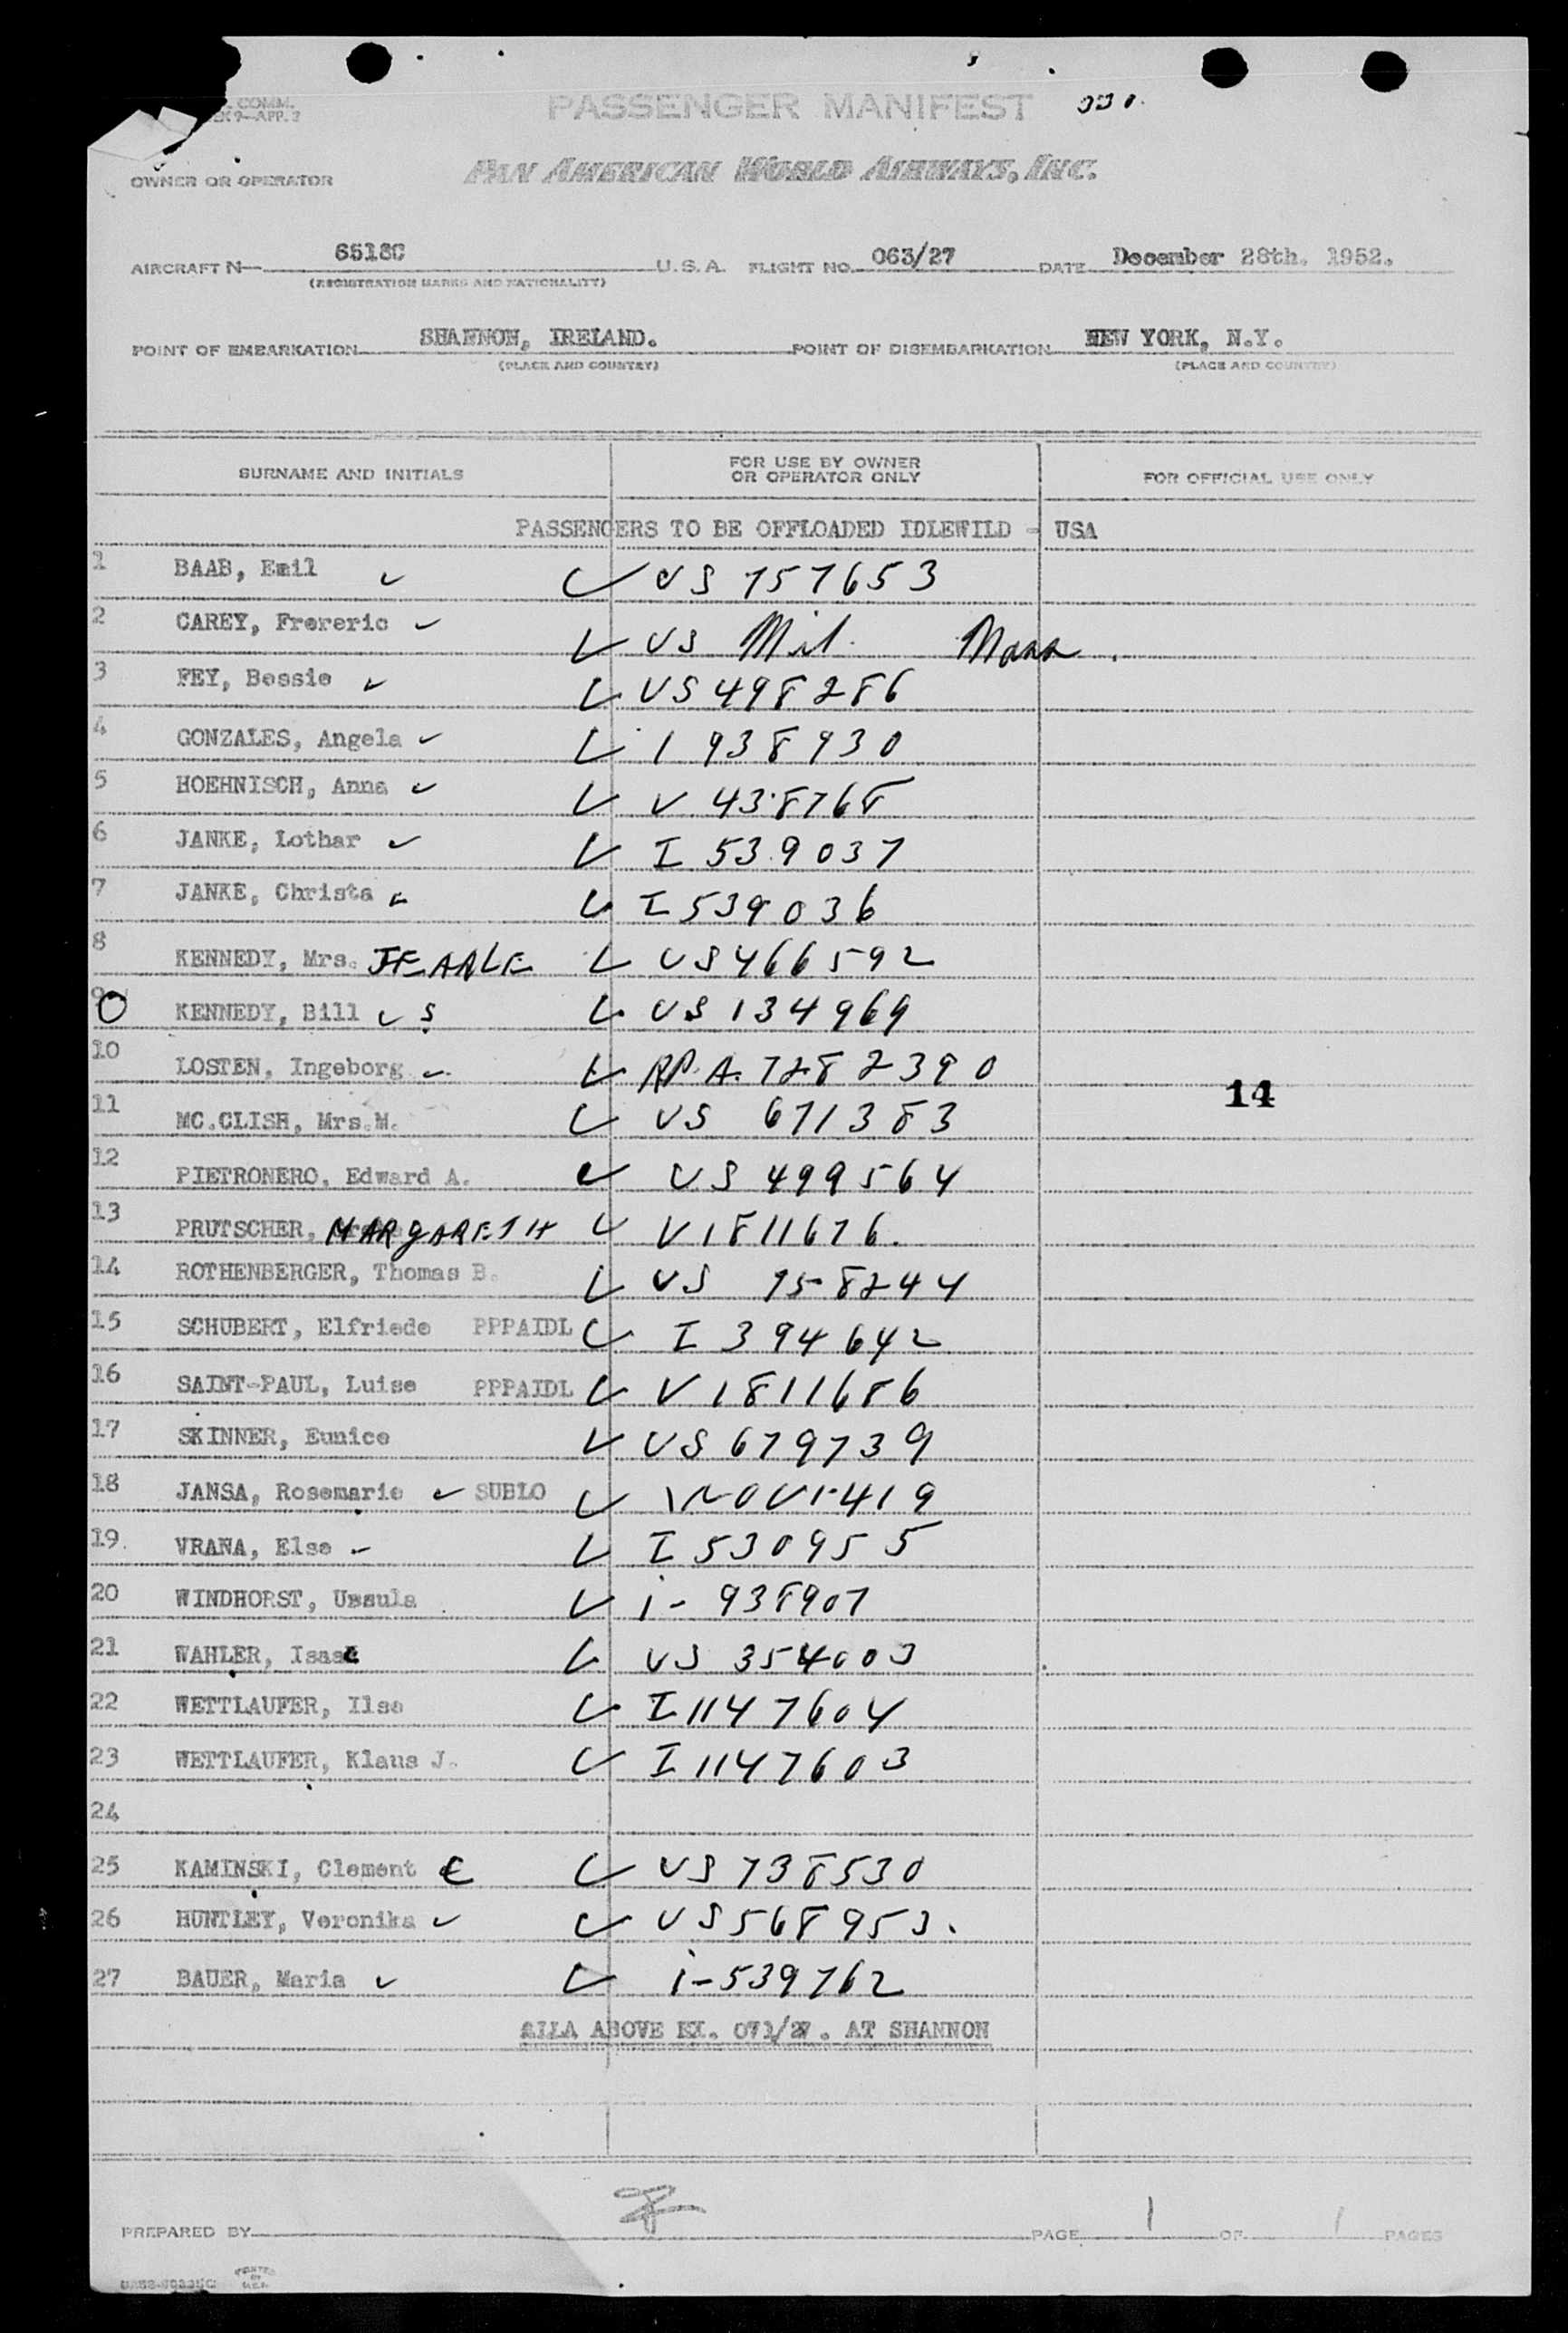 COMM.
9—APP. 2
PASSENGER MANIFEST
OWNER OR OPERATOR
PAN AMERICAN WORLD AIRWAYS, INC.
AIRCRAFT N 6518C U.S.A. FLIGHT NO. 063/27 DATE December 28th. 1952.
(REGISTRATION MARKS AND NATIONALITY)
POINT OF EMBARKATION SHANNON, IRELAND. POINT OF DISEMBARKATION NEW YORK, N.Y.
(PLACE AND COUNTRY) (PLACE AND COUNTRY)
SURNAME AND INITIALS FOR USE BY OWNER OR OPERATOR ONLY FOR OFFICIAL USE ONLY
PASSENGERS TO BE OFFLOADED IDLEWILD - USA
1 BAAB, Emil ✓ ✓ US 757653
2 CAREY, Frereric ✓ ✓ US Mil.
3 FEY, Bessie ✓ ✓ US 498286
4 GONZALES, Angela ✓ ✓ I 938930
5 HOEHNISCH, Anna ✓ ✓ V 438768
6 JANKE, Lothar ✓ ✓ I 539037
7 JANKE, Christa ✓ ✓ I 539036
8 KENNEDY, Mrs. ✓ US 466592
9 KENNEDY, Bill ✓ S ✓ US 134969
10 LOSTEN, Ingeborg ✓ ✓ 7282390
11 MC.CLISH, Mrs.M. ✓ US 671383
12 PIETRONERO, Edward A. ✓ US 499564
13 PRUTSCHER, MARGARETH ✓ V 1811676.
14 ROTHENBERGER, Thomas B. ✓ US 758244
15 SCHUBERT, Elfriede PPPAIDL ✓ I 394642
16 SAINT-PAUL, Luise PPPAIDL ✓ V 1811686
17 SKINNER, Eunice ✓ US 679739
18 JANSA, Rosemarie ✓ SUBLO ✓
19. VRANA, Else ✓ ✓ I 530955
20 WINDHORST, Ussula ✓ i- 938907
21 WAHLER, Isaac ✓ US 354003
22 WETTLAUFER, Ilse ✓ I 1147604
23 WETTLAUFER, Klaus J. ✓ I 1147603
24
25 KAMINSKI, Clement ✓ US 738530
26 HUNTLEY, Veronika ✓ ✓ US 568953.
27 BAUER, Maria ✓ ✓ i-539762
14
AILA ABOVE EX. 071/27. AT SHANNON
PREPARED BY PAGE 1 OF 1 PAGES
PRINTED IN U.S.A.